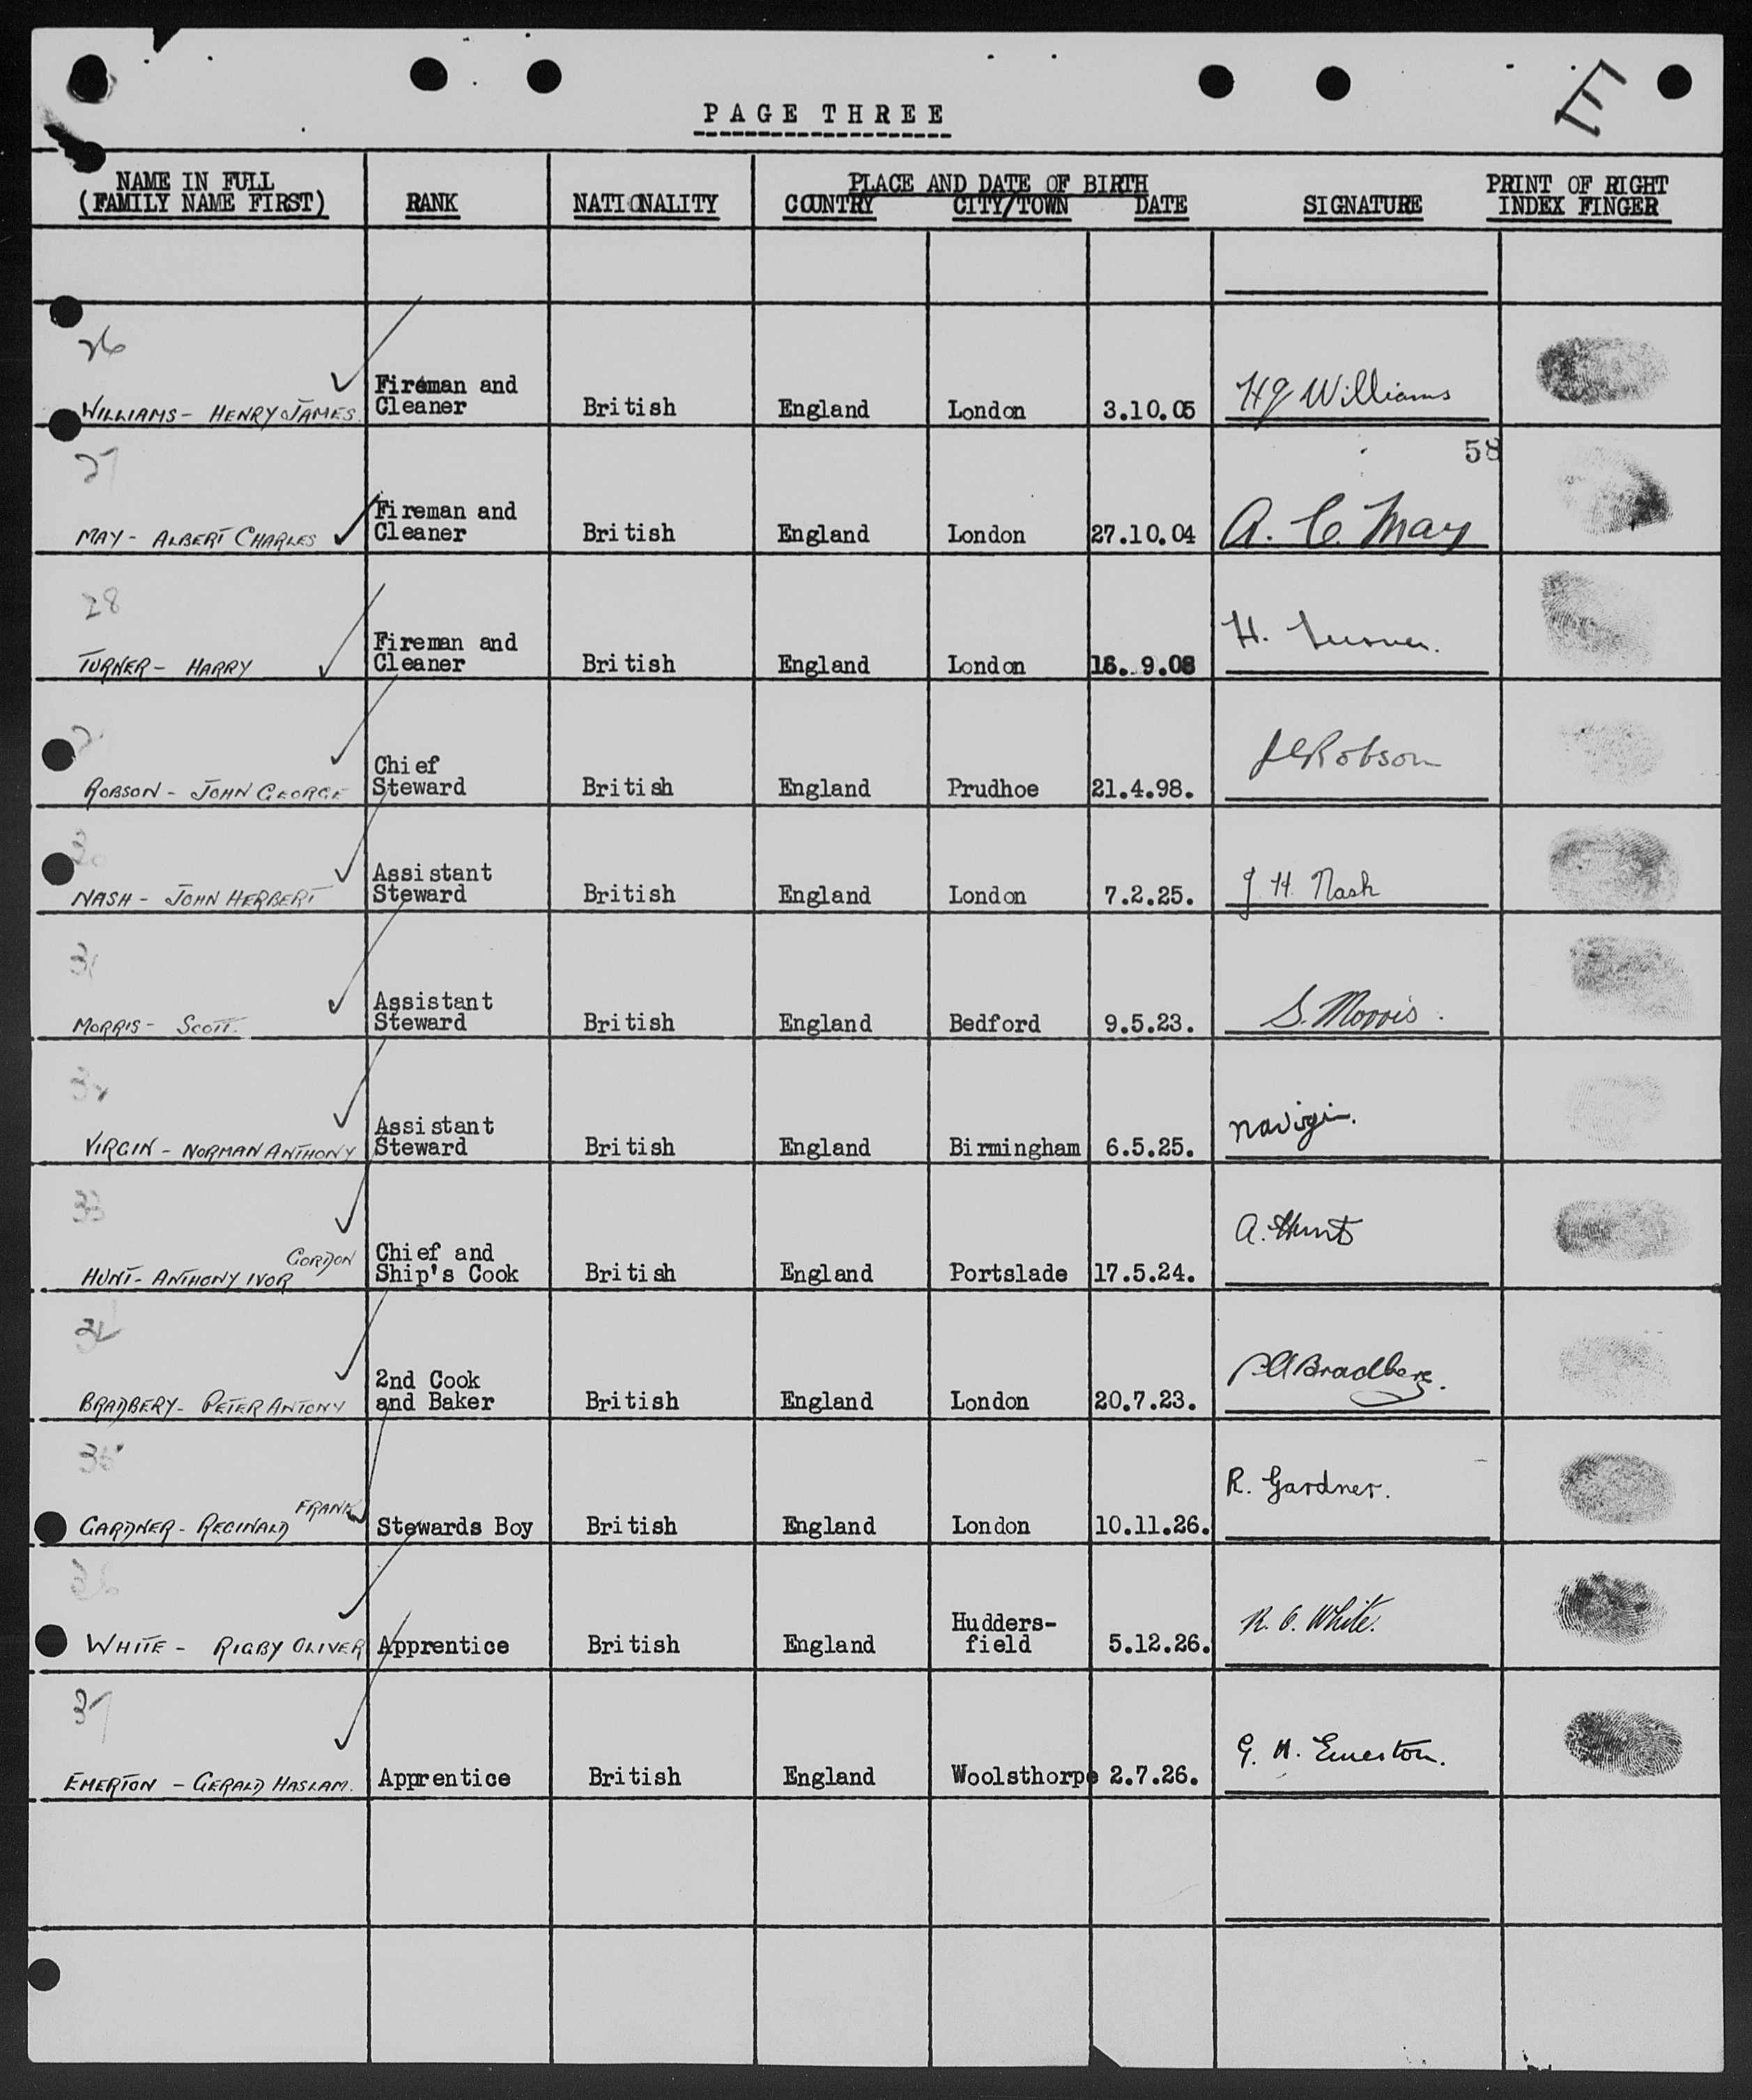 E
PAGE THREE
NAME IN FULL
(FAMILY NAME FIRST)
RANK
NATIONALITY
PLACE AND DATE OF BIRTH
COUNTRY CITY/TOWN DATE
SIGNATURE
PRINT OF RIGHT
INDEX FINGER
26
WILLIAMS - HENRY JAMES. Fireman and Cleaner British England London 3.10.05 HJ Williams
58
27
MAY - ALBERT CHARLES Fireman and Cleaner British England London 27.10.04 A. C. May
28
TURNER - HARRY Fireman and Cleaner British England London 16. 9.08 H. Turner.
ROBSON - JOHN GEORGE Chief Steward British England Prudhoe 21.4.98. JGRobson
30
NASH - JOHN HERBERT Assistant Steward British England London 7.2.25. J. H. Nash
31
MORRIS - SCOTT. Assistant Steward British England Bedford 9.5.23. S. Morris.
32
VIRGIN - NORMAN ANTHONY Assistant Steward British England Birmingham 6.5.25. NAVirgin.
33
HUNT - ANTHONY IVOR GORDON Chief and Ship's Cook British England Portslade 17.5.24. A. Hunt
34
BRADBERY - PETER ANTONY 2nd Cook and Baker British England London 20.7.23. PABradbery.
35
GARDNER - REGINALD FRANK Stewards Boy British England London 10.11.26. R. Gardner.
36
WHITE - RIGBY OLIVER Apprentice British England Hudders-field 5.12.26. R. O. White.
37
EMERTON - GERALD HASLAM. Apprentice British England Woolsthorpe 2.7.26. G. H. Emerton.